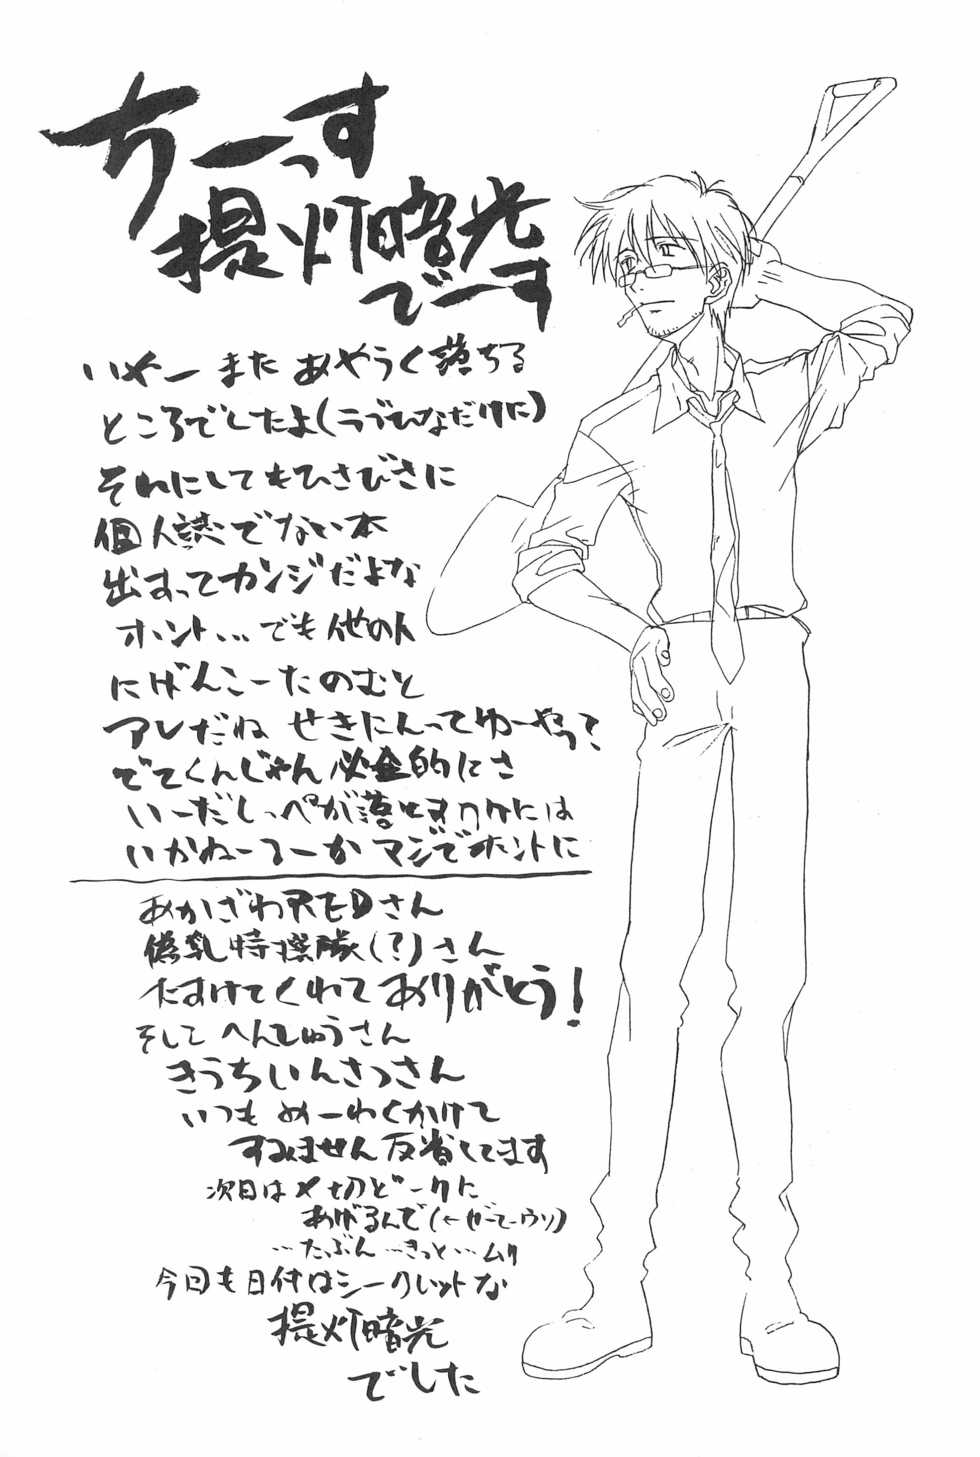 ちーっす
提灯暗光
でーす
いやー またあやうく落ちる
ところでしたよ(ラブひなだけに)
それにしてもひさびさに
個人誌でない本
出すってカンジだよな
ホント…でも他の人
にげんこーたのむと
アレだね せきにんってゆーやつ?
でてくんじゃん必全的にさ
いーだしっぺが落とすワケには
いかねーつーかマジでホントに
あかざわREDさん
偽乳特捜隊(?)さん
たすけてくれてありがとう!
そして へんしゅうさん
きうちいんさつさん
いつも めーわくかけて
すみません反省してます
次回は〆切どーりに
あげるんで(←ぜってーウソ)
…たぶん…きっと…ムリ
今回も日付はシークレットな
提灯暗光
でした